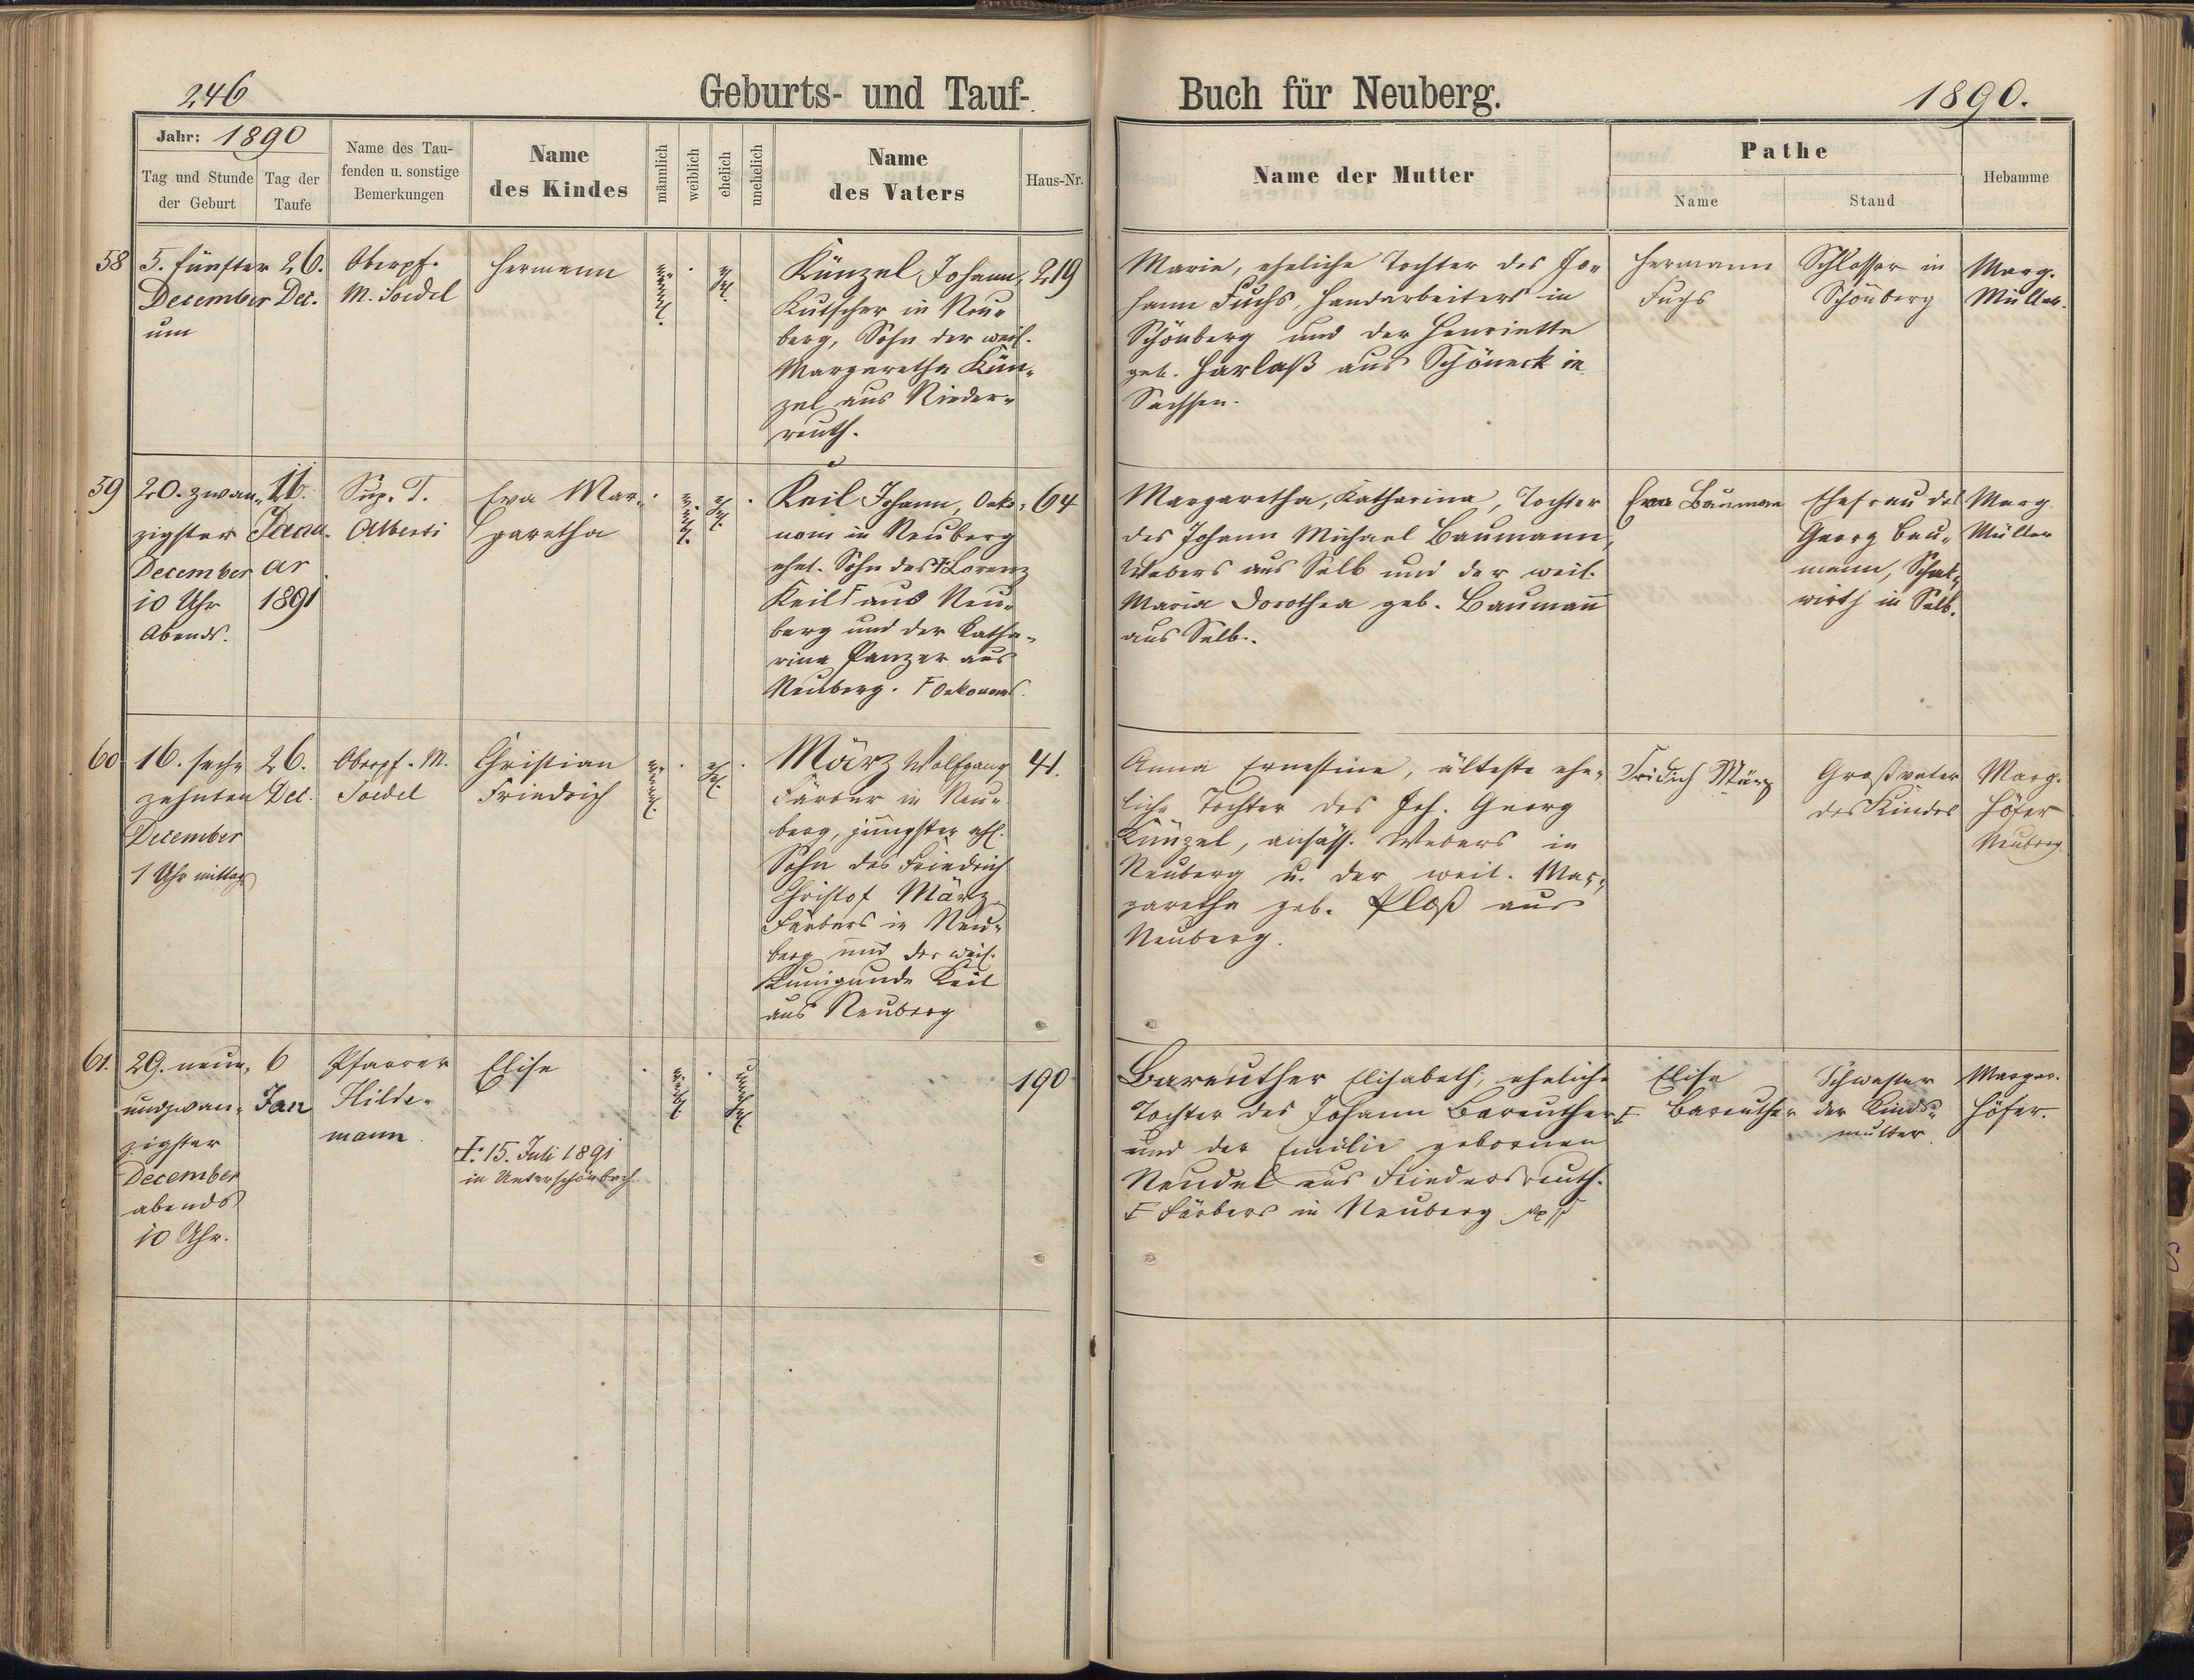 246
Geburts- und Tauf-
Buch für Neuberg.
1890.
Jahr: 1890
Tag und Stunde
der Geburt
Tag der
Taufe
Name des Tau-
fenden u. sonstige
Bemerkungen
Name
des Kindes
männlich
weiblich
ehelich
unehelich
Name
des Vaters
Haus-Nr.
Name der Mutter
Pathe
Name
Stand
Hebamme
58
5. fünfter
December
um
26.
Dec.
Oberpf.
M. Soedel
Hermann
männl.
ehl.
Künzel Johann,
Kutscher in Neu-
berg, Sohn der weil.
Margaretha Kün-
zel aus Nieder-
reuth.
219
Marie, eheliche Tochter des Jo-
hann Fuchs, Handarbeiters in
Schönberg und der Henriette
geb. Harlaß aus Schöneck in
Sachsen.
Hermann
Fuchs
Schlosser in
Schönberg
Marg.
Müller.
59
20. zwan-
zigster
December
10 Uhr
Abends.
11.
Janu-
ar
1891
Sup. T.
Alberti
Eva Mar-
garetha
weibl.
ehl.
Keil Johann, Oeko-
nom in Neuberg
ehel. Sohn des Lorenz
Keil aus Neu-
berg und der Katha-
rina Panzer aus
Neuberg. Oekonoms.
64
Margaretha, Katharina, Tochter
des Johann Michael Baumann,
Webers aus Selb und der weil.
Maria Dorothea geb. Baumañ
aus Selb.
Eva Baumann
Ehefrau des
Georg Bau-
mann,
wirth in Selb.
Marg.
Müller
60
16. sech-
zehnten
December
1 Uhr mittags
26.
Dec.
Oberpf. M.
Soedel
Christian
Friedrich
männl.
ehl.
März Wolfgang
Färber in Neu-
berg, jüngster ehl.
Sohn des Friedrich
Christof März,
Färbers in Neu-
berg und der weil.
Kunigunde Keil
aus Neuberg
41.
Anna Ernestine, älteste ehe-
liche Tochter des Joh. Georg
Künzel, ansäss. Webers in
Neuberg u. der weil. Mar-
garetha geb. Ploß aus
Neuberg.
März
Großvater
des Kindes
Marg.
Höfer
Neuberg
61.
29. neun-
undzwan-
zigster
December
abends
10 Uhr.
6
Jan
Pfarrer
Hilde-
mann.
Elise
†: 15. Juli 1891
in Unterschönbach.
weibl.
unehl.
190
Bareuther Elisabeth, eheliche
Tochter des Johann Bareuther
und der Emilie gebornen
Neudel aus Friedersreuth.
Färbers in Neuberg
Elise
Bareuther
Schwester
der Kinds-
mutter.
Margar.
Höfer.